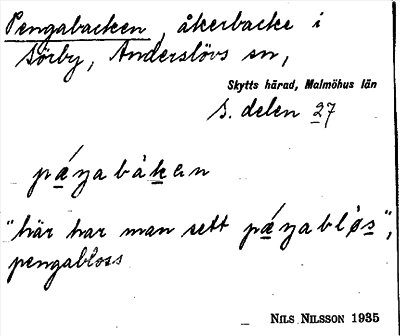 Pengabacken, åkerbacke i
Sörby, Anderslövs sn,
Skytts härad, Malmöhus län
s. delen 27
pǽŋabàkan
"här har man sett pǽŋablòs",
pengabloss
NILS NILSSON 1935